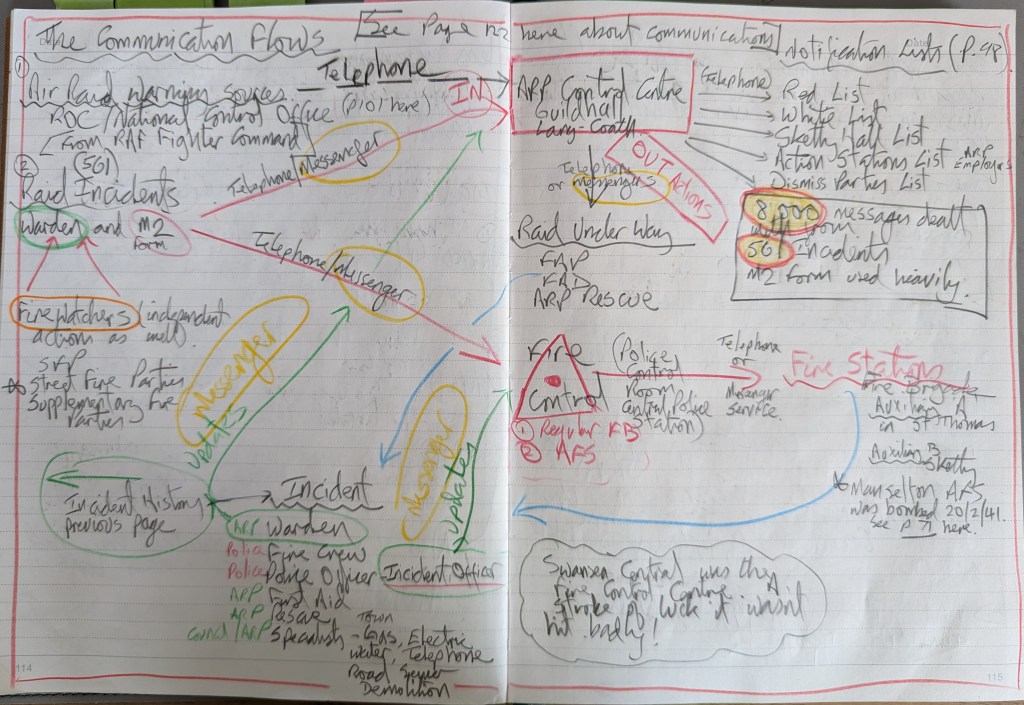 The Communication Flows
[See Page 112 here about communication]
Notification Lists (P.98).
Telephone
①
Air Raid Warning sources
ROC/National Control Office (p101 here)
From RAF Fighter Command
② (561)
Raid Incidents
Warden and M2
Form
Telephone/Messenger
IN
Telephone/Messenger
Fire Watchers (independent
actions as well).
SFP
Street Fire Parties
Supplementary Fire
Parties
Messenger
Updates
Incident History
previous page
Incident
ARP Warden
Police Fire Crew
Police Police Officer
ARP First Aid
ARP Rescue
Council/ARP Specialists - Town
Gas, Electric
Water, Telephone
Road
Demolition
Messenger
Updates
Incident Officer
114
ARP Control Centre
Guildhall
Lang-Coath
(Telephone)
Red List
White List
Sketty Hall List
Action Stations List ARP
Employers
Dismiss Parties List
OUT Actions
Telephone
or messengers
Raid Under Way
FAP
FAP
ARP Rescue
8,000 messages dealt
with from
561 Incidents
M2 form used heavily.
Fire
Control
(Police
Control
Room
Central Police
Station)
① Regular FB
② AFS
Telephone
or
Messenger
Service.
Fire Stations
Fire Brigade
Auxiliary A
in St Thomas
Auxiliary B
Sketty
Manselton AFS
was bombed 20/2/41.
See p 71 here.
Swansea Central was the
Fire Control Centre. A
stroke of luck it wasn't
hit badly!
115